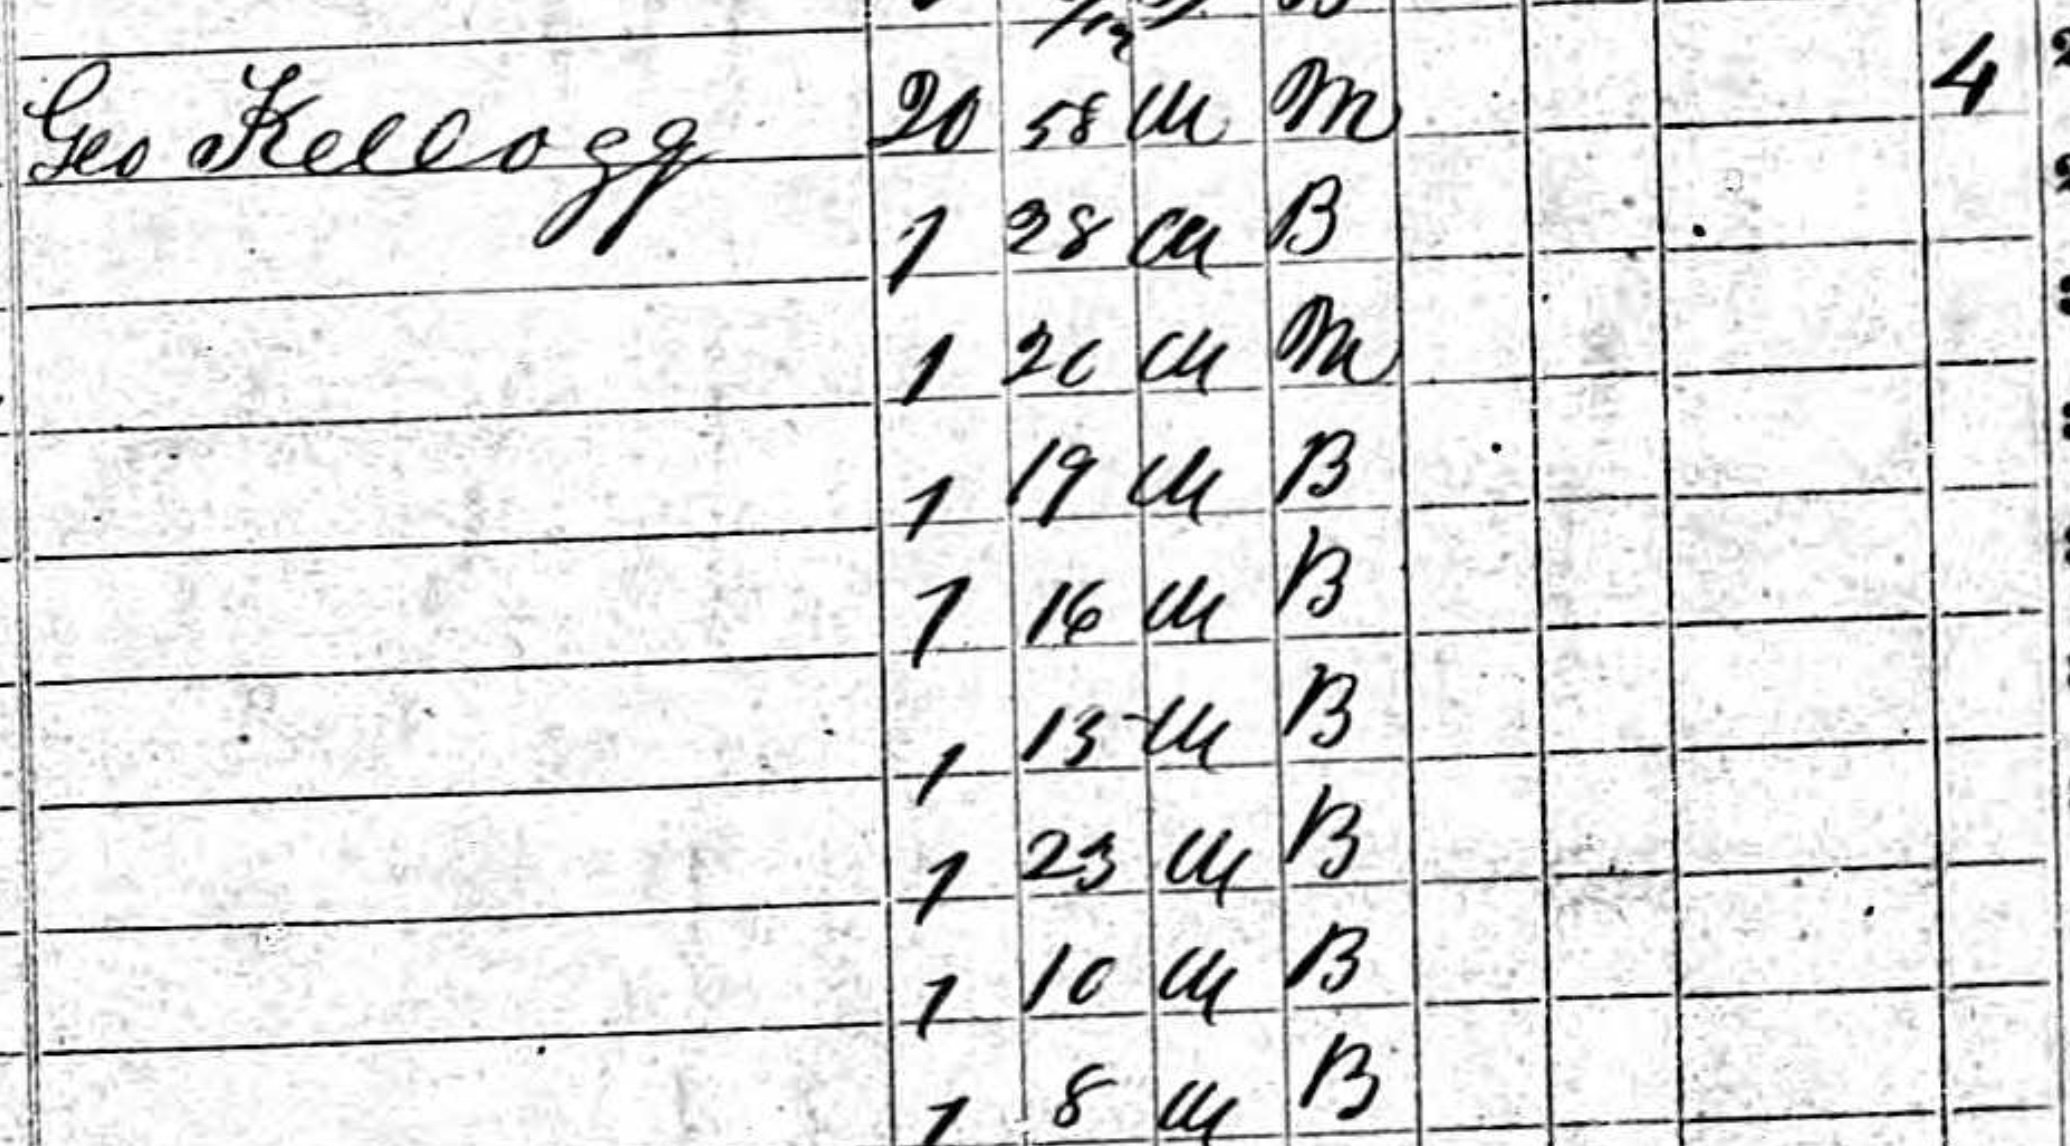 Geo Kellogg 20 58 M M 4
1 28 M B
1 20 M M
1 19 M B
1 16 M B
1 13 M B
1 23 M B
1 10 M B
1 8 M B